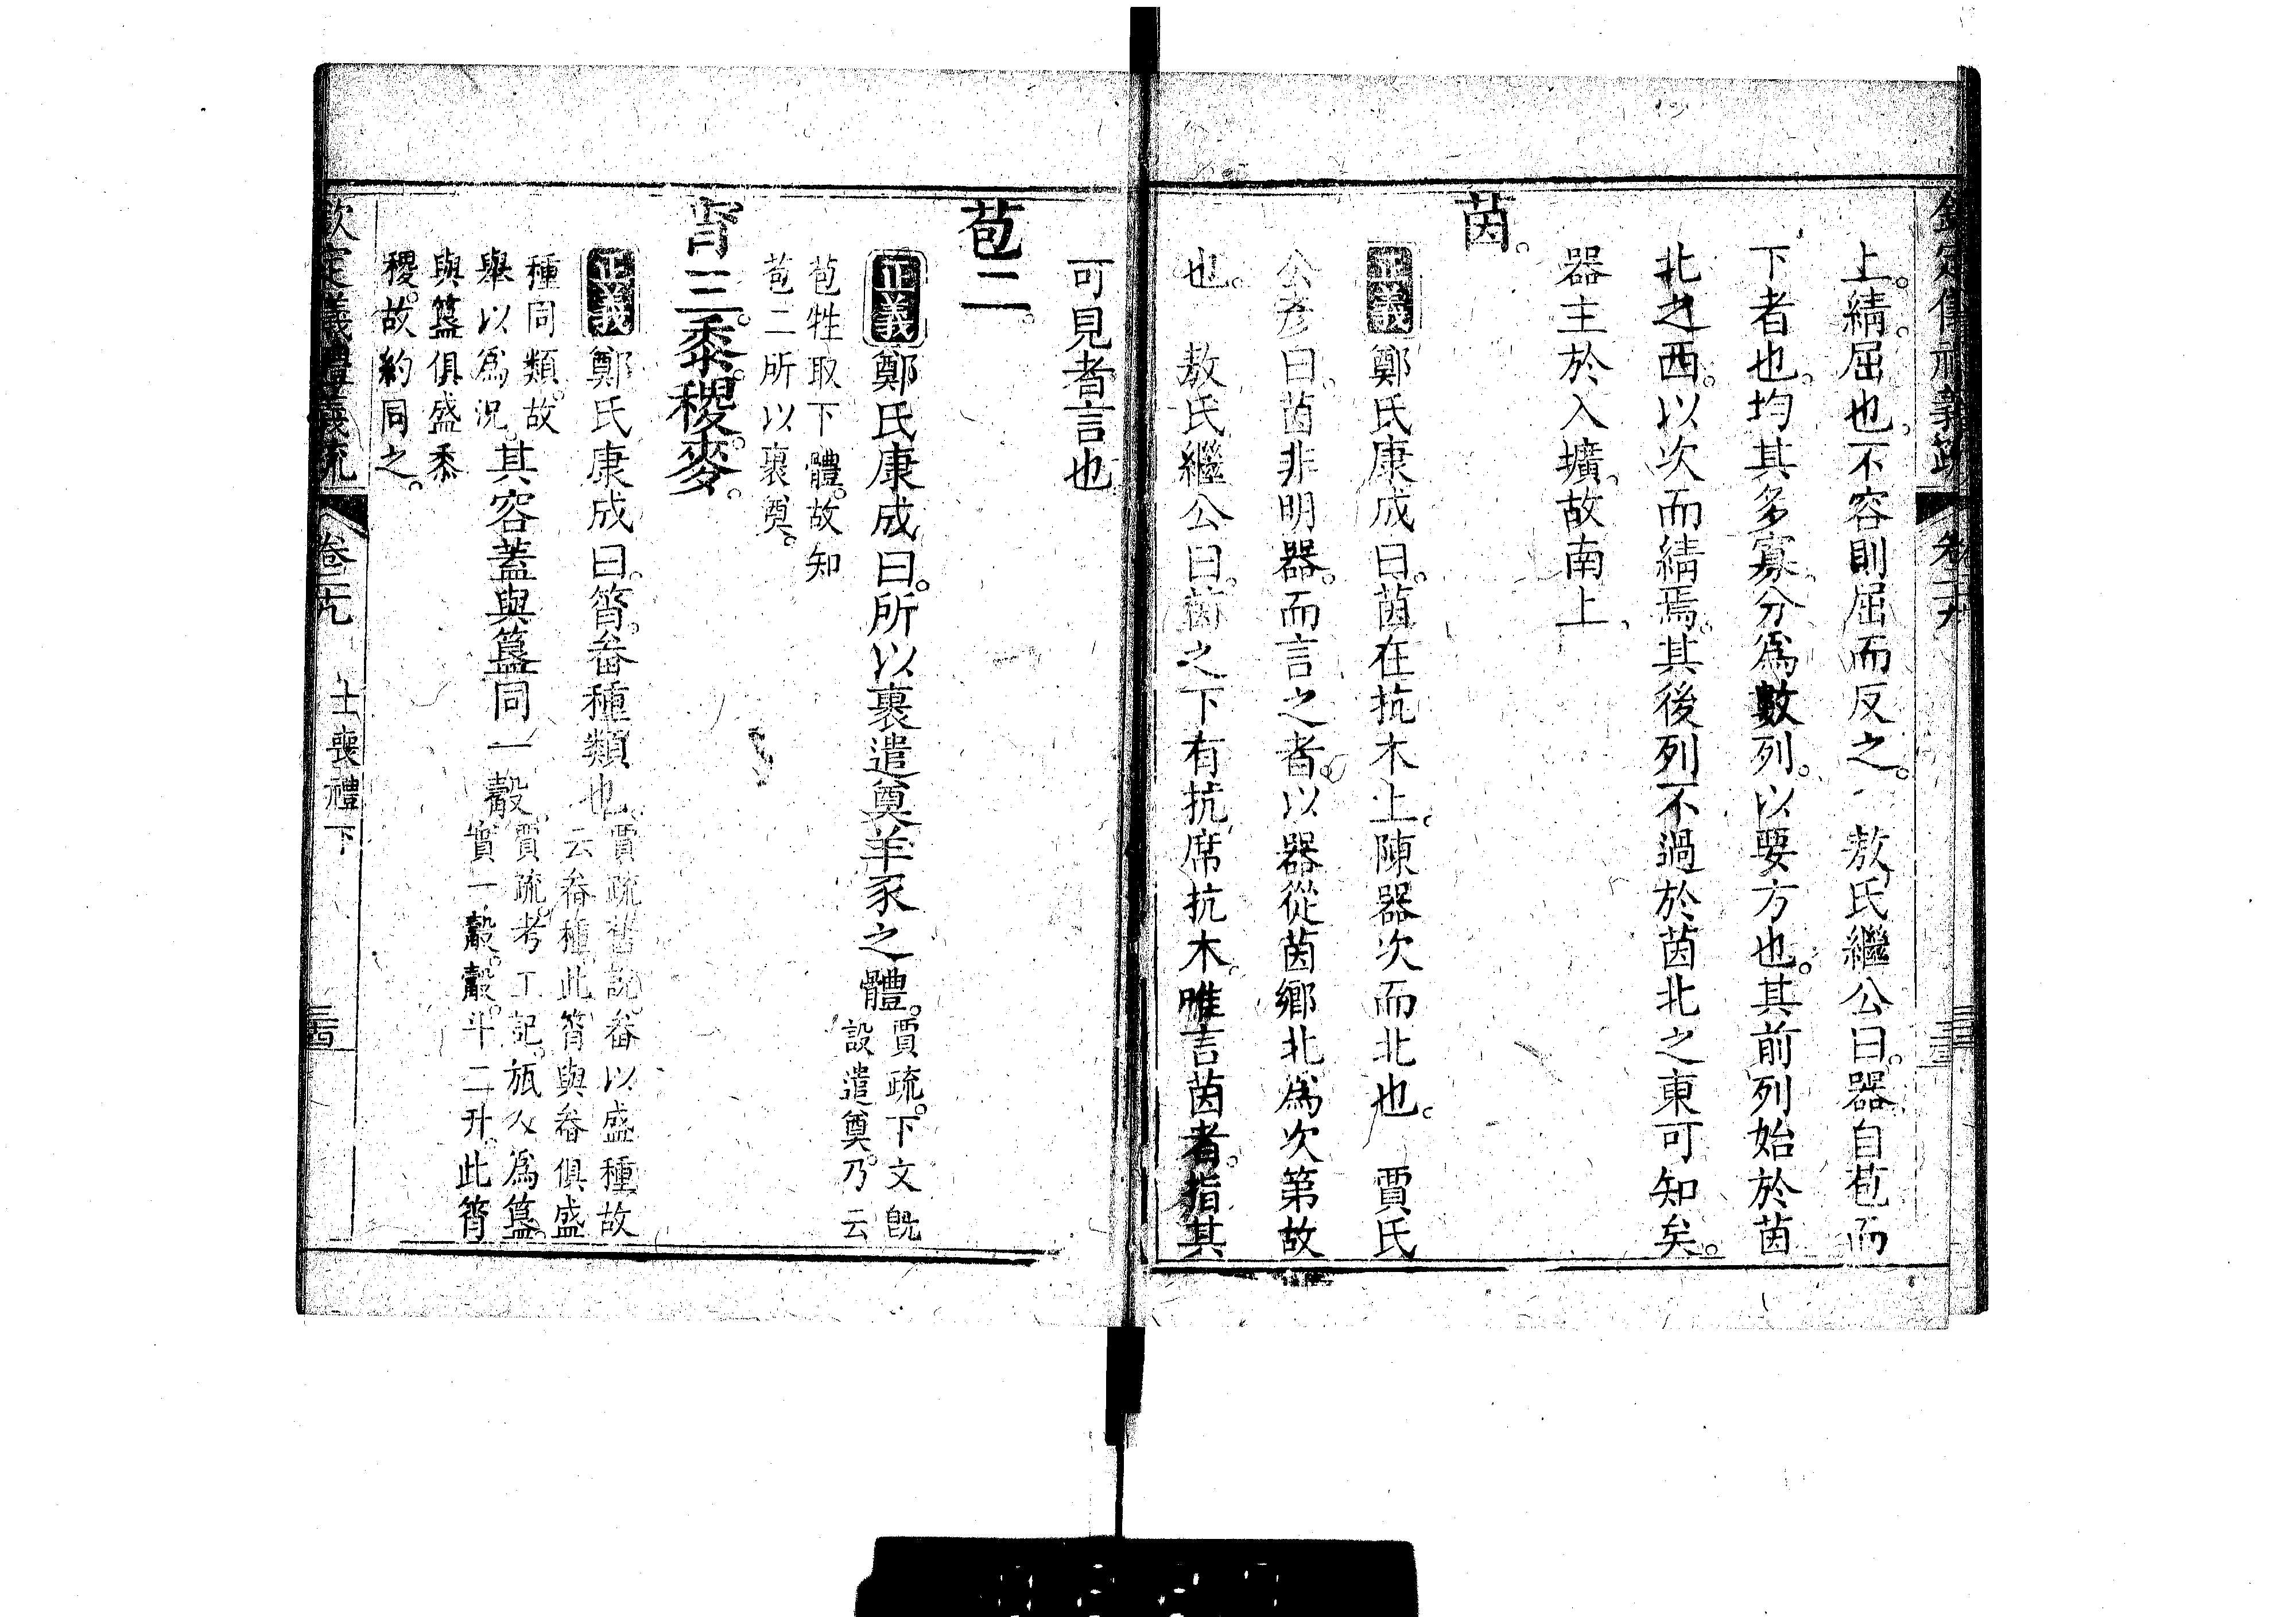 上。綪。屈也。不容則屈而反之。 敖氏繼公曰。器自苞而
下者也。均其多寡。分爲數列。以要方也。其前列始於茵
北之西。以次而綪焉。其後列不過於茵北之東可知矣。
器主於入壙。故南上。
茵。
正義 鄭氏康成曰。茵在抗木上。陳器次而北也。 賈氏
公彥曰。茵非明器。而言之者。以器從茵鄉北爲次第故
也。 敖氏繼公曰。茵之下有抗席抗木。唯言茵者。指其
可見者言也
苞二。
正義 鄭氏康成曰。所以裹遣奠羊豕之體。賈疏。下文旣
設遣奠。乃云
苞牲取下體。故知
苞二所以裹奠。
筲三。黍。稷。麥。
正義 鄭氏康成曰。筲。畚種類也。賈疏。舊說。畚以盛種。故
云畚種。此筲與畚俱盛
種同類。故
舉以爲況。其容蓋與簋同一觳。賈疏。考工記。瓬人爲簋。
實一觳。觳。斗二升。此筲
與簋俱盛黍
稷。故約同之。
欽定儀禮義疏 卷二九 士喪禮下 三四